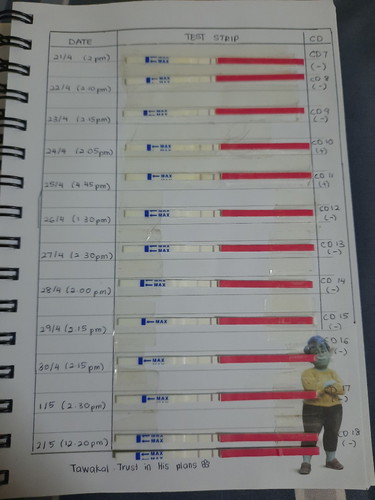 DATE TEST STRIP CD
21/4 (2pm) MAX CD 7
(-)
22/4 (2.10pm) MAX CD 8
(-)
23/4 (2.15pm) MAX CD 9
(-)
24/4 (2.05pm) MAX CD 10
(+)
25/4 (4.45pm) MAX CD 11
(+)
26/4 (1.30pm) MAX CD 12
(-)
27/4 (2.30pm) MAX CD 13
(-)
28/4 (2.00pm) MAX CD 14
(-)
29/4 (2.15pm) MAX CD 15
(-)
30/4 (2.15pm) MAX CD 16
(-)
1/5 (2.30pm) MAX 17
(-)
2/5 (12.20pm) MAX CD 18
MAX (-)
Tawakal. Trust in His plans